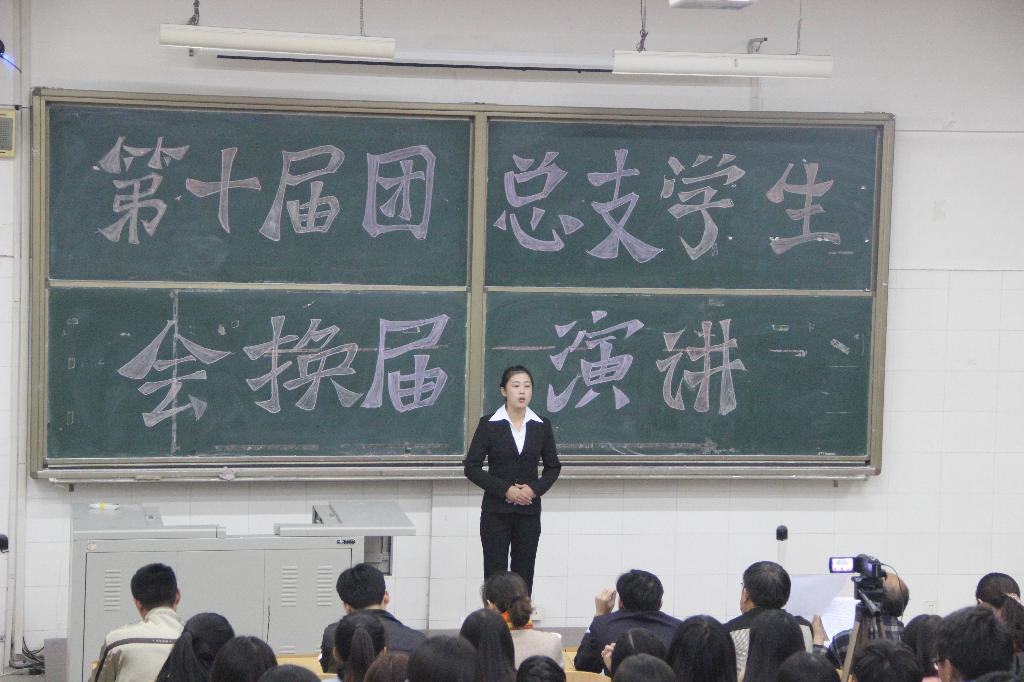 第十届团总支学生
会换届演讲